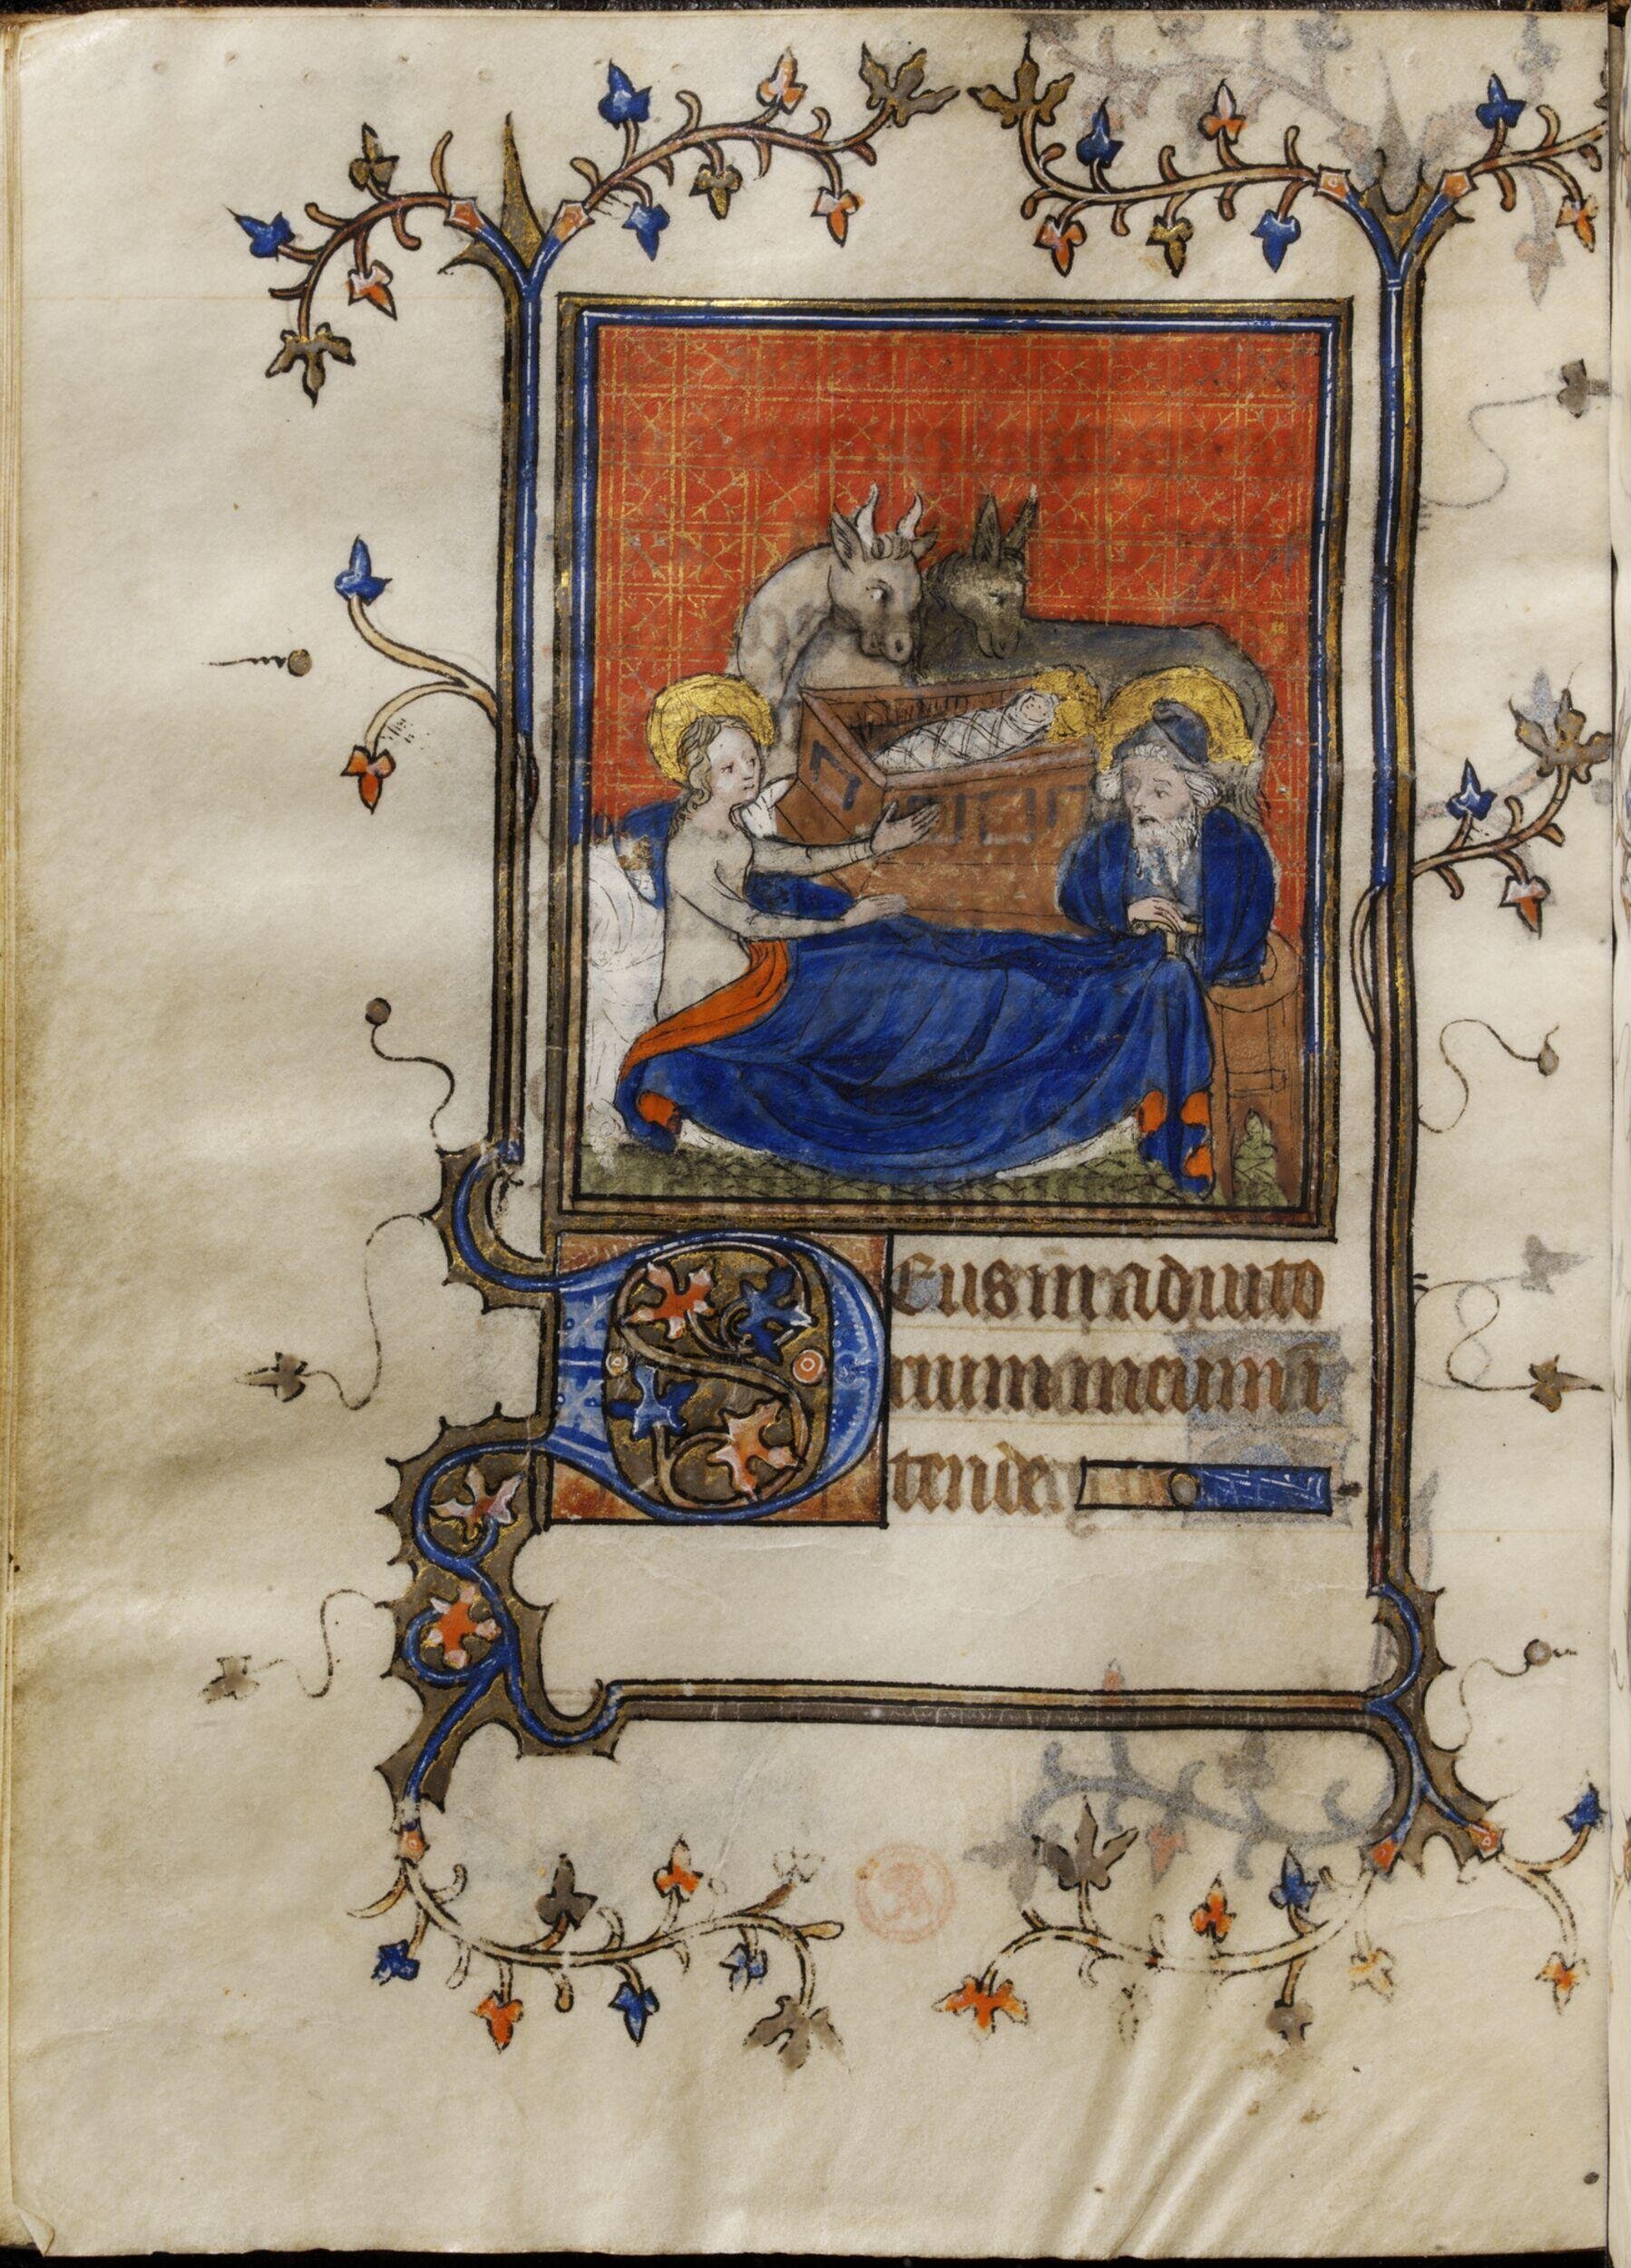 Deus in adiuto
rium meum in
tende